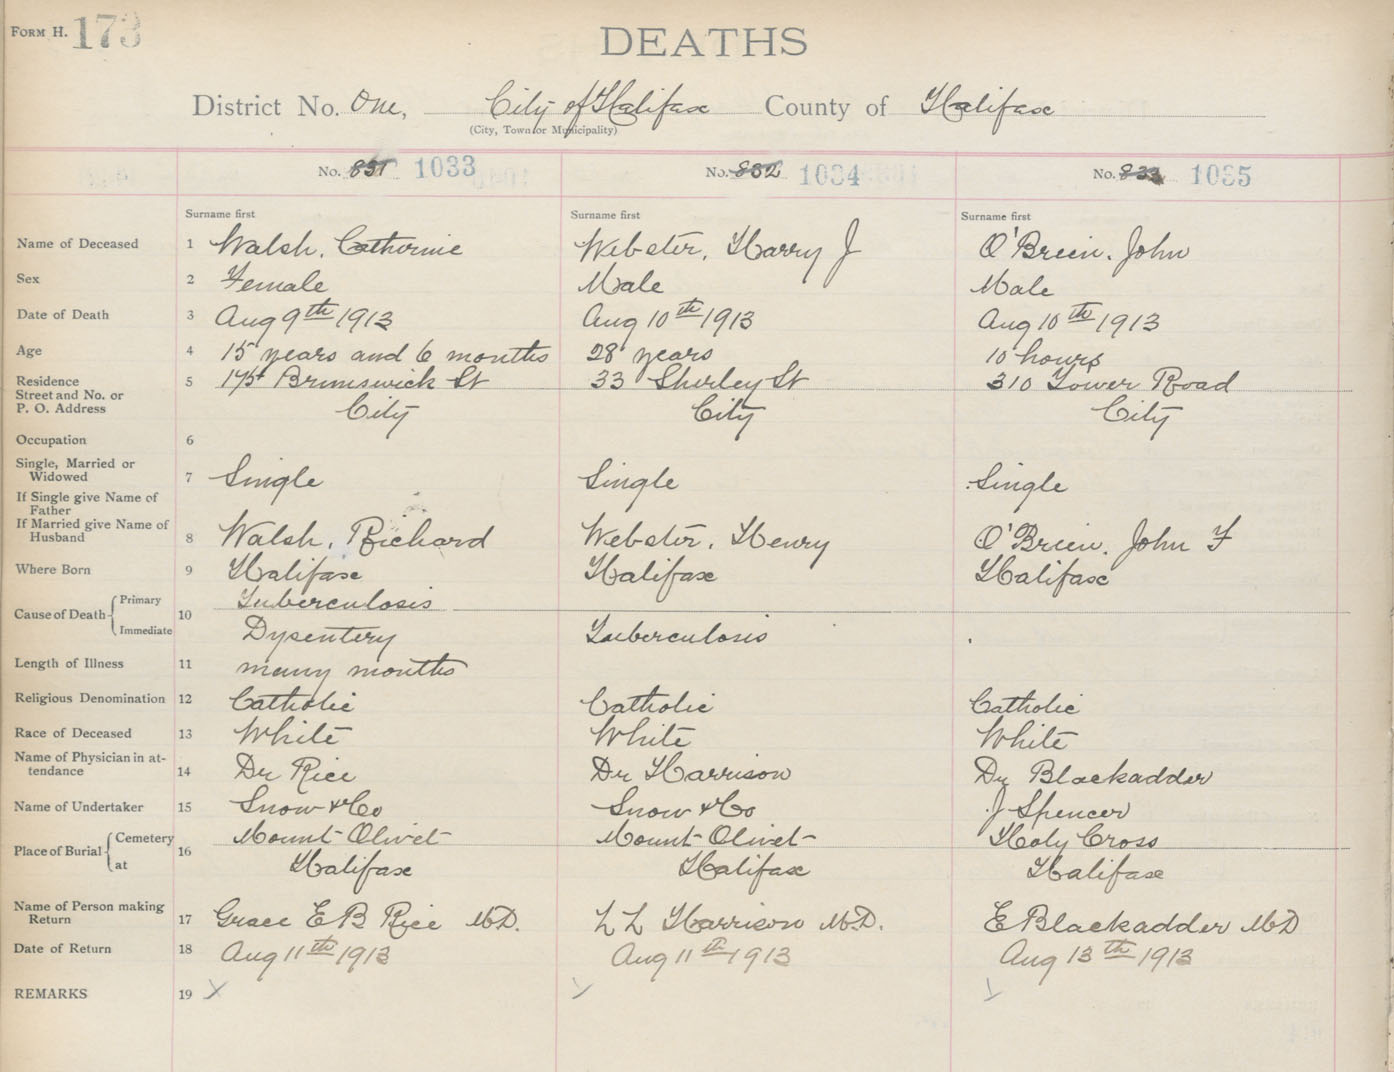 FORM H. 173
DEATHS
District No. One, City of Halifax County of Halifax
(City, Town or Municipality)
No. 831 1033 No. 832 1034 No. 833 1035
Surname first Surname first Surname first
Name of Deceased 1 Walsh, Catherine Webster, Harry J O'Brein, John
Sex 2 Female Male Male
Date of Death 3 Aug 9th 1913 Aug 10th 1913 Aug 10th 1913
Age 4 15 years and 6 months 28 years 10 hours
Residence 5 175 Brunswick St 33 Shirley St 310 Tower Road
Street and No. or
P. O. Address City City City
Occupation 6
Single, Married or
Widowed 7 Single Single Single
If Single give Name of
Father
If Married give Name of
Husband 8 Walsh, Richard Webster, Henry O'Brein, John F
Where Born 9 Halifax Halifax Halifax
Cause of Death Primary 10 Tuberculosis
Immediate Dysentery Tuberculosis
Length of Illness 11 many months
Religious Denomination 12 Catholic Catholic Catholic
Race of Deceased 13 White White White
Name of Physician in at-
tendance 14 Dr Rice Dr Harrison Dr Blackadder
Name of Undertaker 15 Snow & Co Snow & Co J Spencer
Place of Burial Cemetery 16 Mount Olivet Mount Olivet Holy Cross
at Halifax Halifax Halifax
Name of Person making
Return 17 Grace E B Rice M.D. L L Harrison M.D. E Blackadder MD
Date of Return 18 Aug 11th 1913 Aug 11th 1913 Aug 13th 1913
REMARKS 19